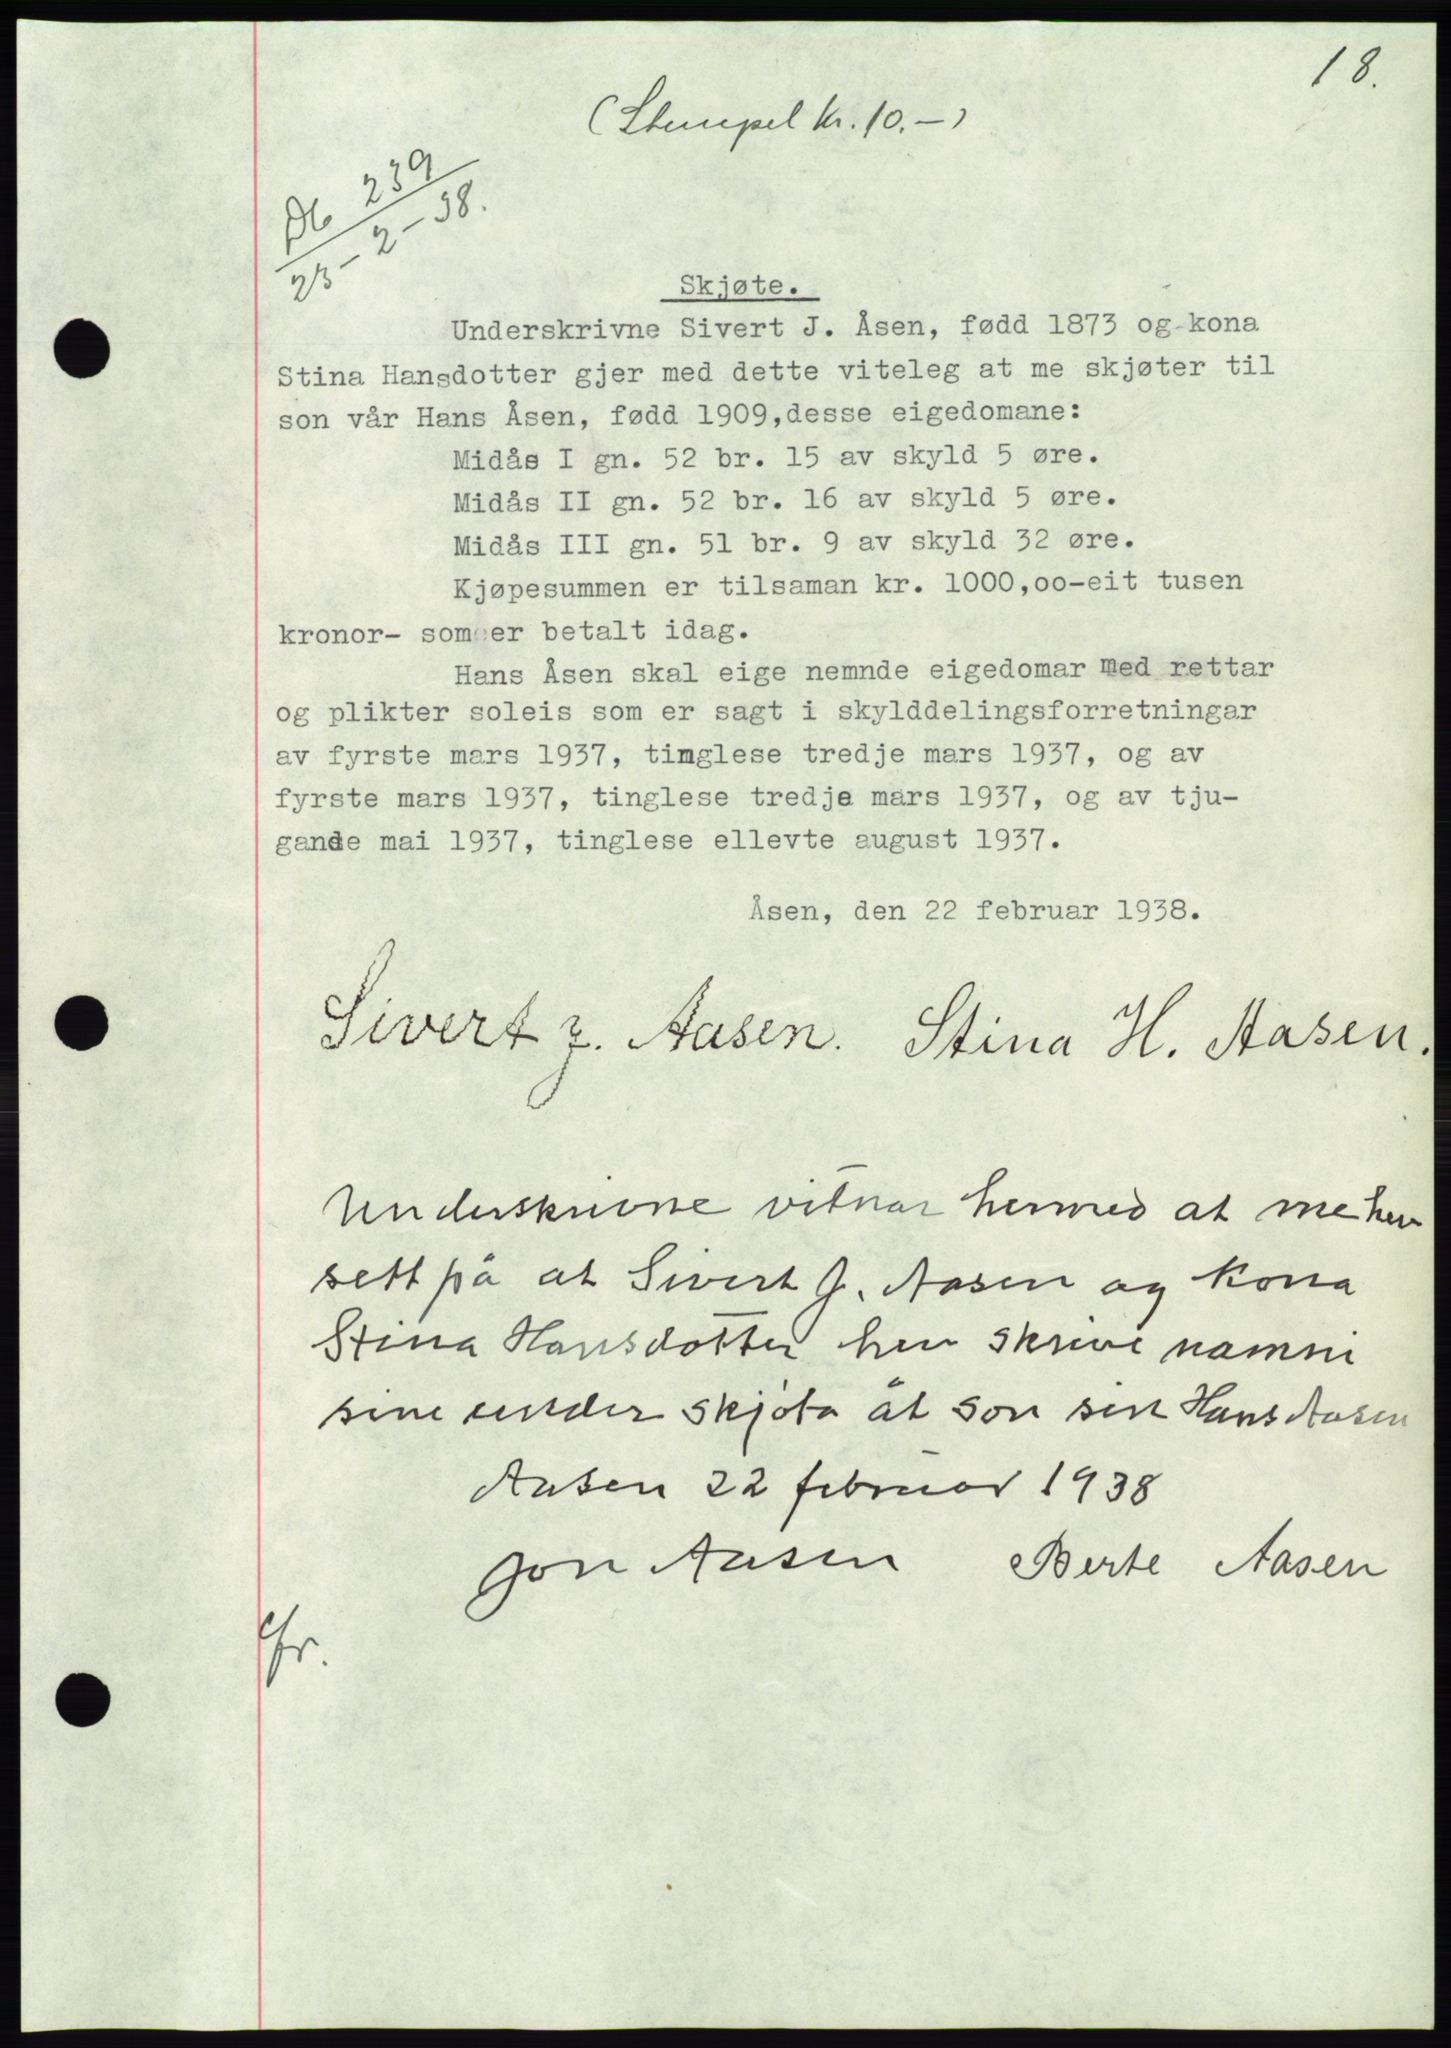 18.
(Stempel kr. 10.-)
Db 239
23-2-38.
Skjøte.
Underskrivne Sivert J. Åsen, fødd 1873 og kona
Stina Hansdotter gjer med dette viteleg at me skjøter til
son vår Hans Åsen, fødd 1909,desse eigedomane:
Midås I gn. 52 br. 15 av skyld 5 øre.
Midås II gn. 52 br. 16 av skyld 5 øre.
Midås III gn. 51 br. 9 av skyld 32 øre.
Kjøpesummen er tilsaman kr. 1000,oo-eit tusen
kronor- som er betalt idag.
Hans Åsen skal eige nemnde eigedomar med rettar
og plikter soleis som er sagt i skylddelingsforretningar
av fyrste mars 1937, tinglese tredje mars 1937, og av
fyrste mars 1937, tinglese tredje mars 1937, og av tju-
gande mai 1937, tinglese ellevte august 1937.
Åsen, den 22 februar 1938.
Sivert J. Aasen. Stina H. Aasen.
Underskrivne vitnar hermed at me hev
sett på at Sivert J. Aasen og kona
Stina Hansdotter hev skrive namni
sine under skjøta åt son sin Hans Aasen
Aasen 22 februar 1938
Jon Aasen Berte Aasen